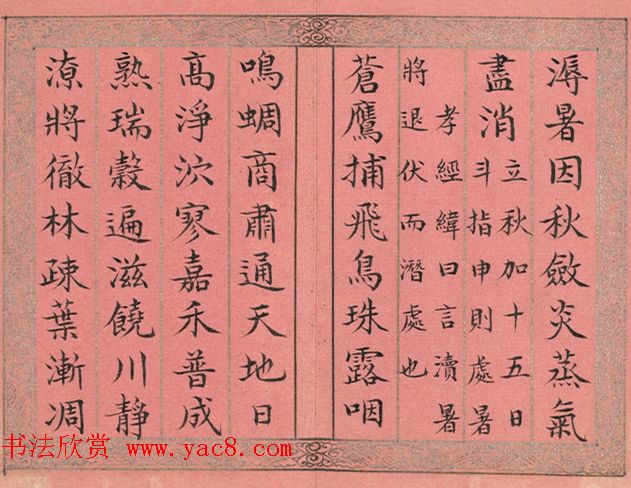 溽暑因秋斂炎蒸氣
盡消
立秋加十五日
斗指申則處暑
孝經緯曰言瀆暑
將退伏而潛處也
蒼鷹捕飛鳥珠露咽
鳴蜩商肅通天地日
高淨泬寥嘉禾普成
熟瑞穀遍滋饒川靜
潦將徹林疎葉漸凋
书法欣赏 www.yac8.com